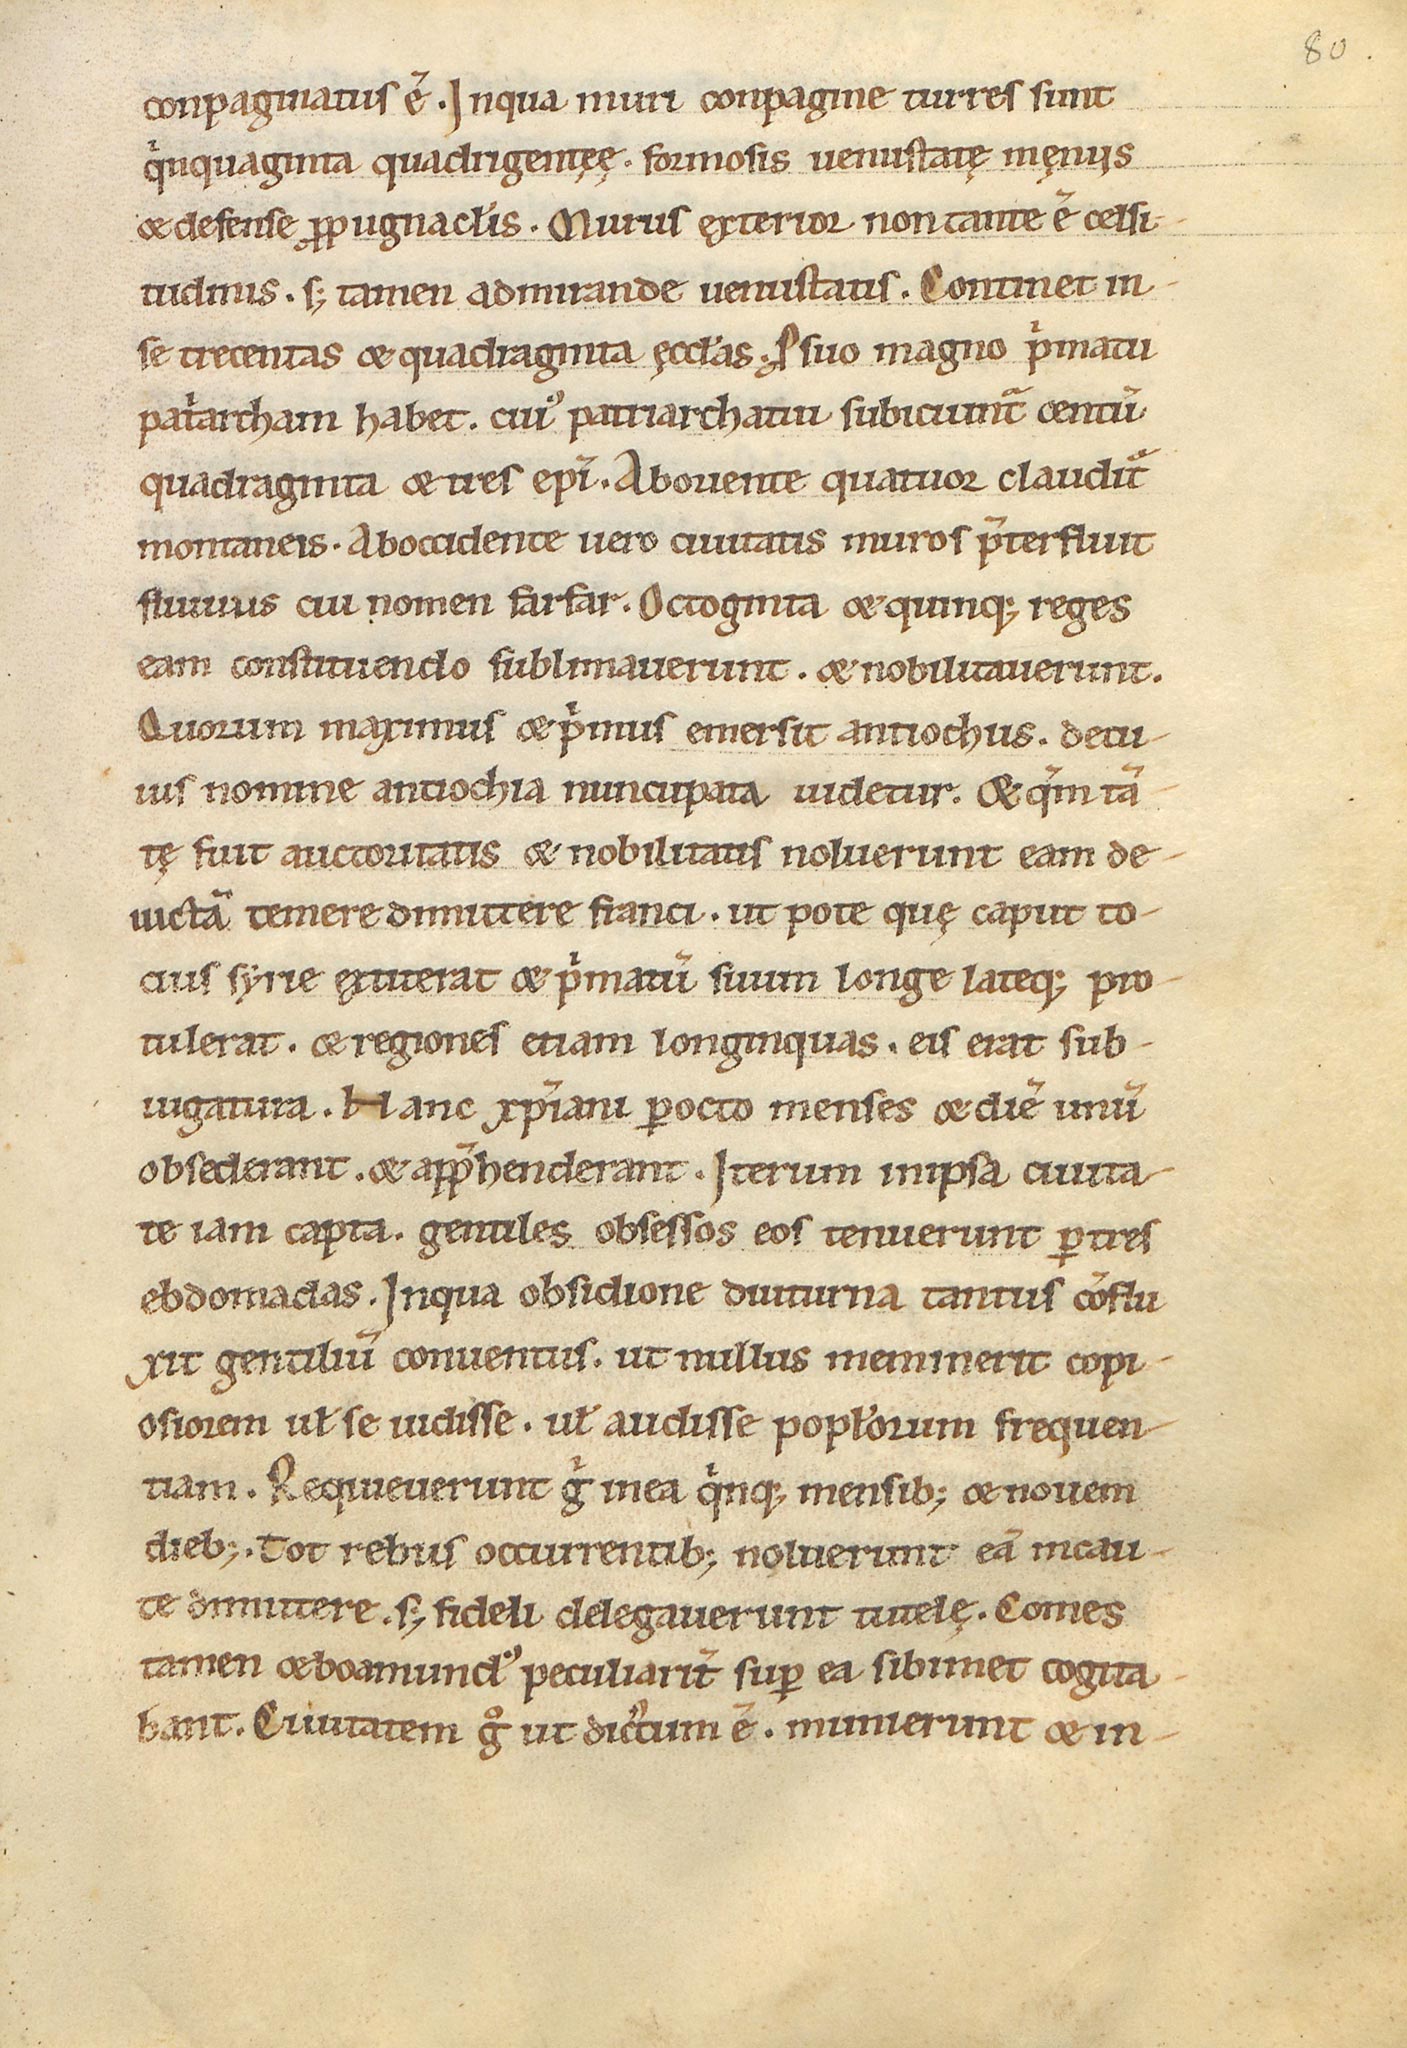 80.
conpaginatus ē. In qua muri conpagine turres sunt
qͥnquaginta quadrigentęę. formosis uenustatę męniis
& defense ꝓpugnacl̓is. Murus ęxterior non tante ē celsi-
tudinis. s; tamen admirande uenustatis. Continet in-
se trecentas & quadraginta ęccl̓as. P suo magno pͥmatu
patͥarcham habet. cuiꝰ patriarchatui subiciunt᷑ centū
quadraginta & tres ep̄i. Ab oriente quatuor claudit᷑
montaneis. Ab occidente uero ciuitatis muros p̄terfluit
fluuius cui nomen farfar. Octoginta & quinq; reges
eam constituendo sublimauerunt. & nobilitauerunt.
Quorum maximus & pͥmus emersit antiochus. de cu-
ius nomine antiochia nuncupata uidetur. & qm̄ tā-
tę fuit auctoritatis & nobilitatis noluerunt eam de-
uictā temere dimittere franci. ut pote quę caput to-
cius syrie ęxtiterat & pͥmatū suum longe lateq; pro-
tulerat. & regiones etiam longinquas. eis erat sub-
iugatura. Hanc xp̄iani ꝑ octo menses & diē unū
obsederant. & app̄henderant. Iterum in ipsa ciuita-
te iam capta. gentiles obsessos eos tenuerunt ꝑ tres
ebdomadas. In qua obsidione diuturna tantus cōflu
xit gentiliū conuentus. ut nullus meminerit copi-
osiorem ul̓ se uidisse. ul̓ audisse popl̓orum frequen-
tiam. Requieuerunt gͥ in ea qͥnq; mensib; & nouem
dieb;. Tot rebus occurrentib; noluerunt eā incau-
te dimittere. s; fideli delegauerunt tutelę. Comes
tamen & boamundꝰ peculiarit̄ suꝑ ea sibimet cogita-
bant. Ciuitatem gͦ ut dictum ē. munierunt & in-